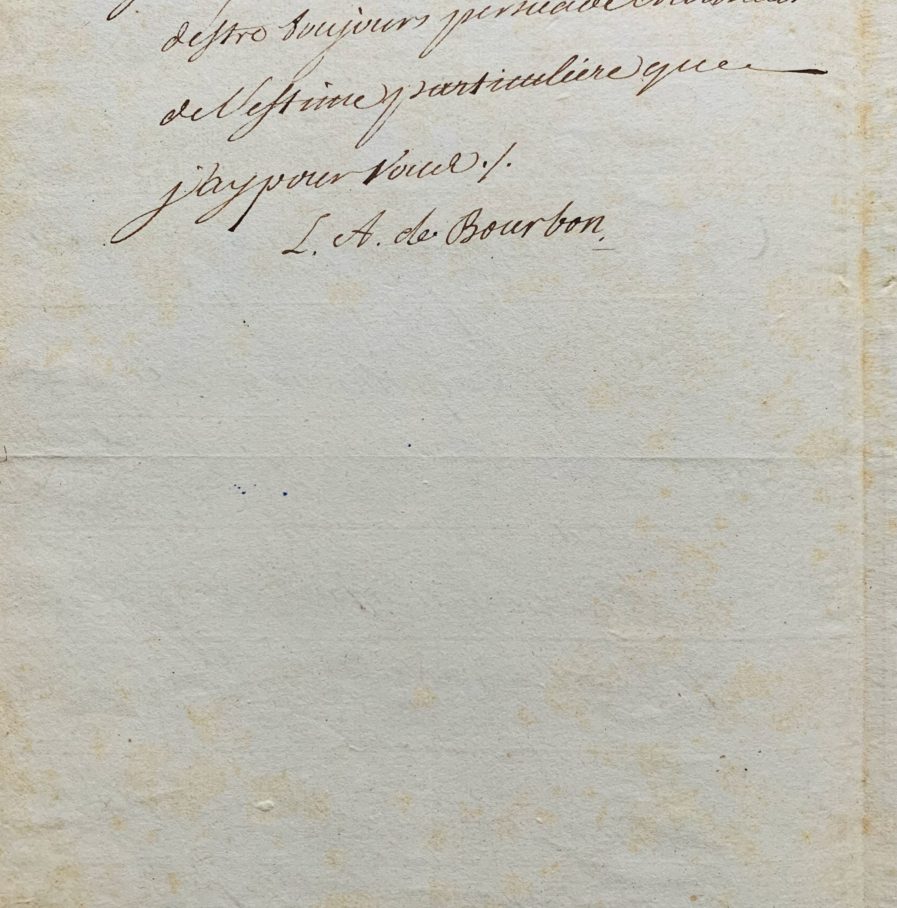 destre toujours persuadé Monsieur
de l'estime particuliere que
j'ay pour Vous ./.
L. A. de Bourbon